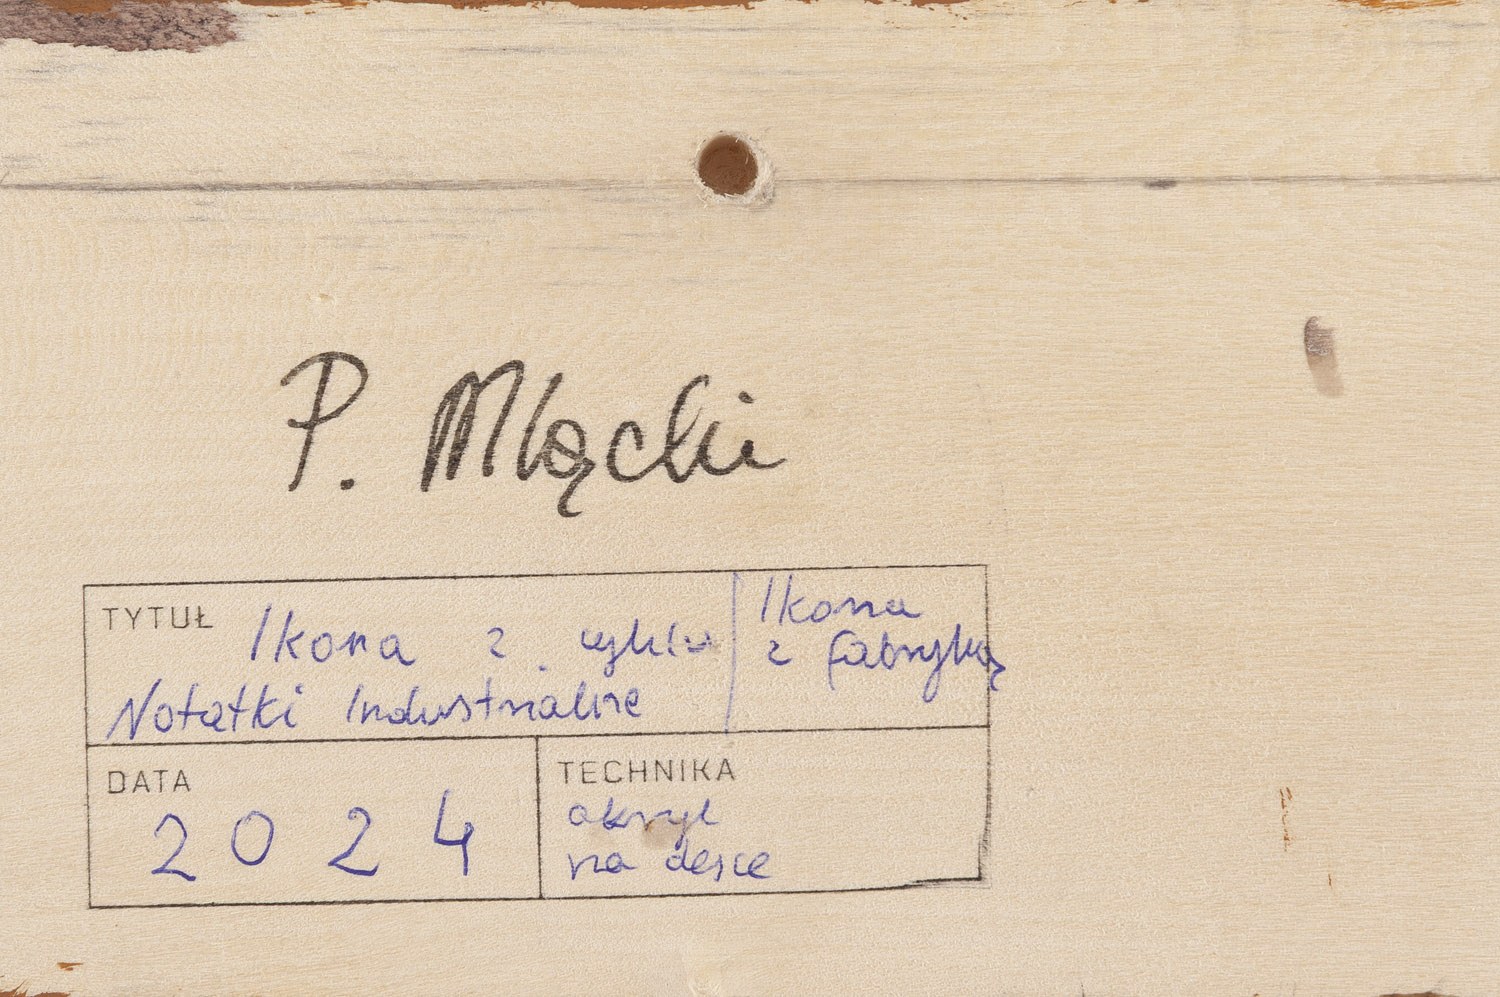 P. Młącki
TYTUŁ Ikona z cyklu
Notatki Industrialne
Ikona
z fabryką
DATA
2024
TECHNIKA
akryl
na desce